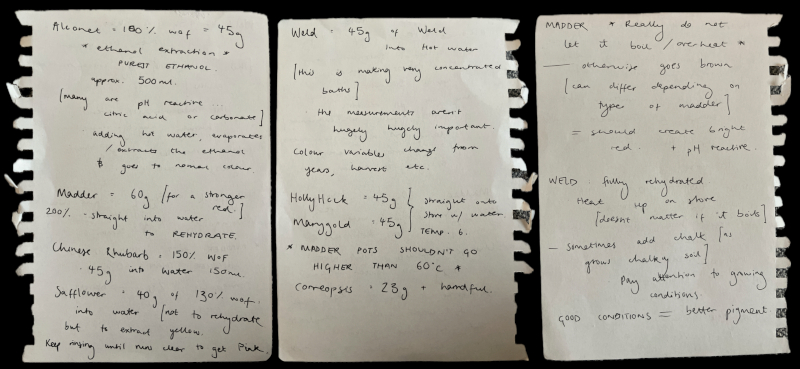 Alconet = 150% wof = 45g
* ethanol extraction *
PUREST ETHANOL.
approx. 500ml.
[many are pH reactive ...
citric acid or carbonate]
adding hot water, evaporates
/extracts the ethanol
& goes to normal colour.
Madder = 60g [for a stronger
red.]
200% - straight into water
to REHYDRATE.
Chinese Rhubarb = 150% WOF
. 45g into water 150ml.
Safflower = 40g of 130% wof.
into water [not to rehydrate
but to extract yellow.
Keep rinsing until runs clear to get Pink.
Weld = 45g of Weld
into Hot water
[this is making very concentrated
baths]
the measurements aren't
hugely hugely important.
Colour variables change from
years, harvest etc.
HollyHock = 45g
Marygold = 45g
} straight onto
stove w/ water
TEMP. 6.
* MADDER POTS SHOULDN'T GO
HIGHER THAN 60°C *
Correopsis = 23g + handful.
MADDER * Really do not
let it boil / overheat *
— otherwise goes brown
[can differ depending on
type of madder]
= should create bright
red. + pH reactive.
WELD. fully rehydrated
Heat up on stove
[doesn't matter if it boils]
— Sometimes add chalk [as
grows chalky soil]
Pay attention to growing
conditions.
GOOD CONDITIONS = better pigment